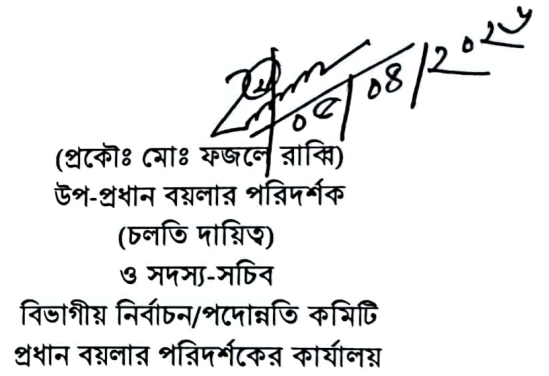 ০৫/০৪/২০২৬
(প্রকৌঃ মোঃ ফজলে রাব্বি)
উপ-প্রধান বয়লার পরিদর্শক
(চলতি দায়িত্ব)
ও সদস্য-সচিব
বিভাগীয় নির্বাচন/পদোন্নতি কমিটি
প্রধান বয়লার পরিদর্শকের কার্যালয়